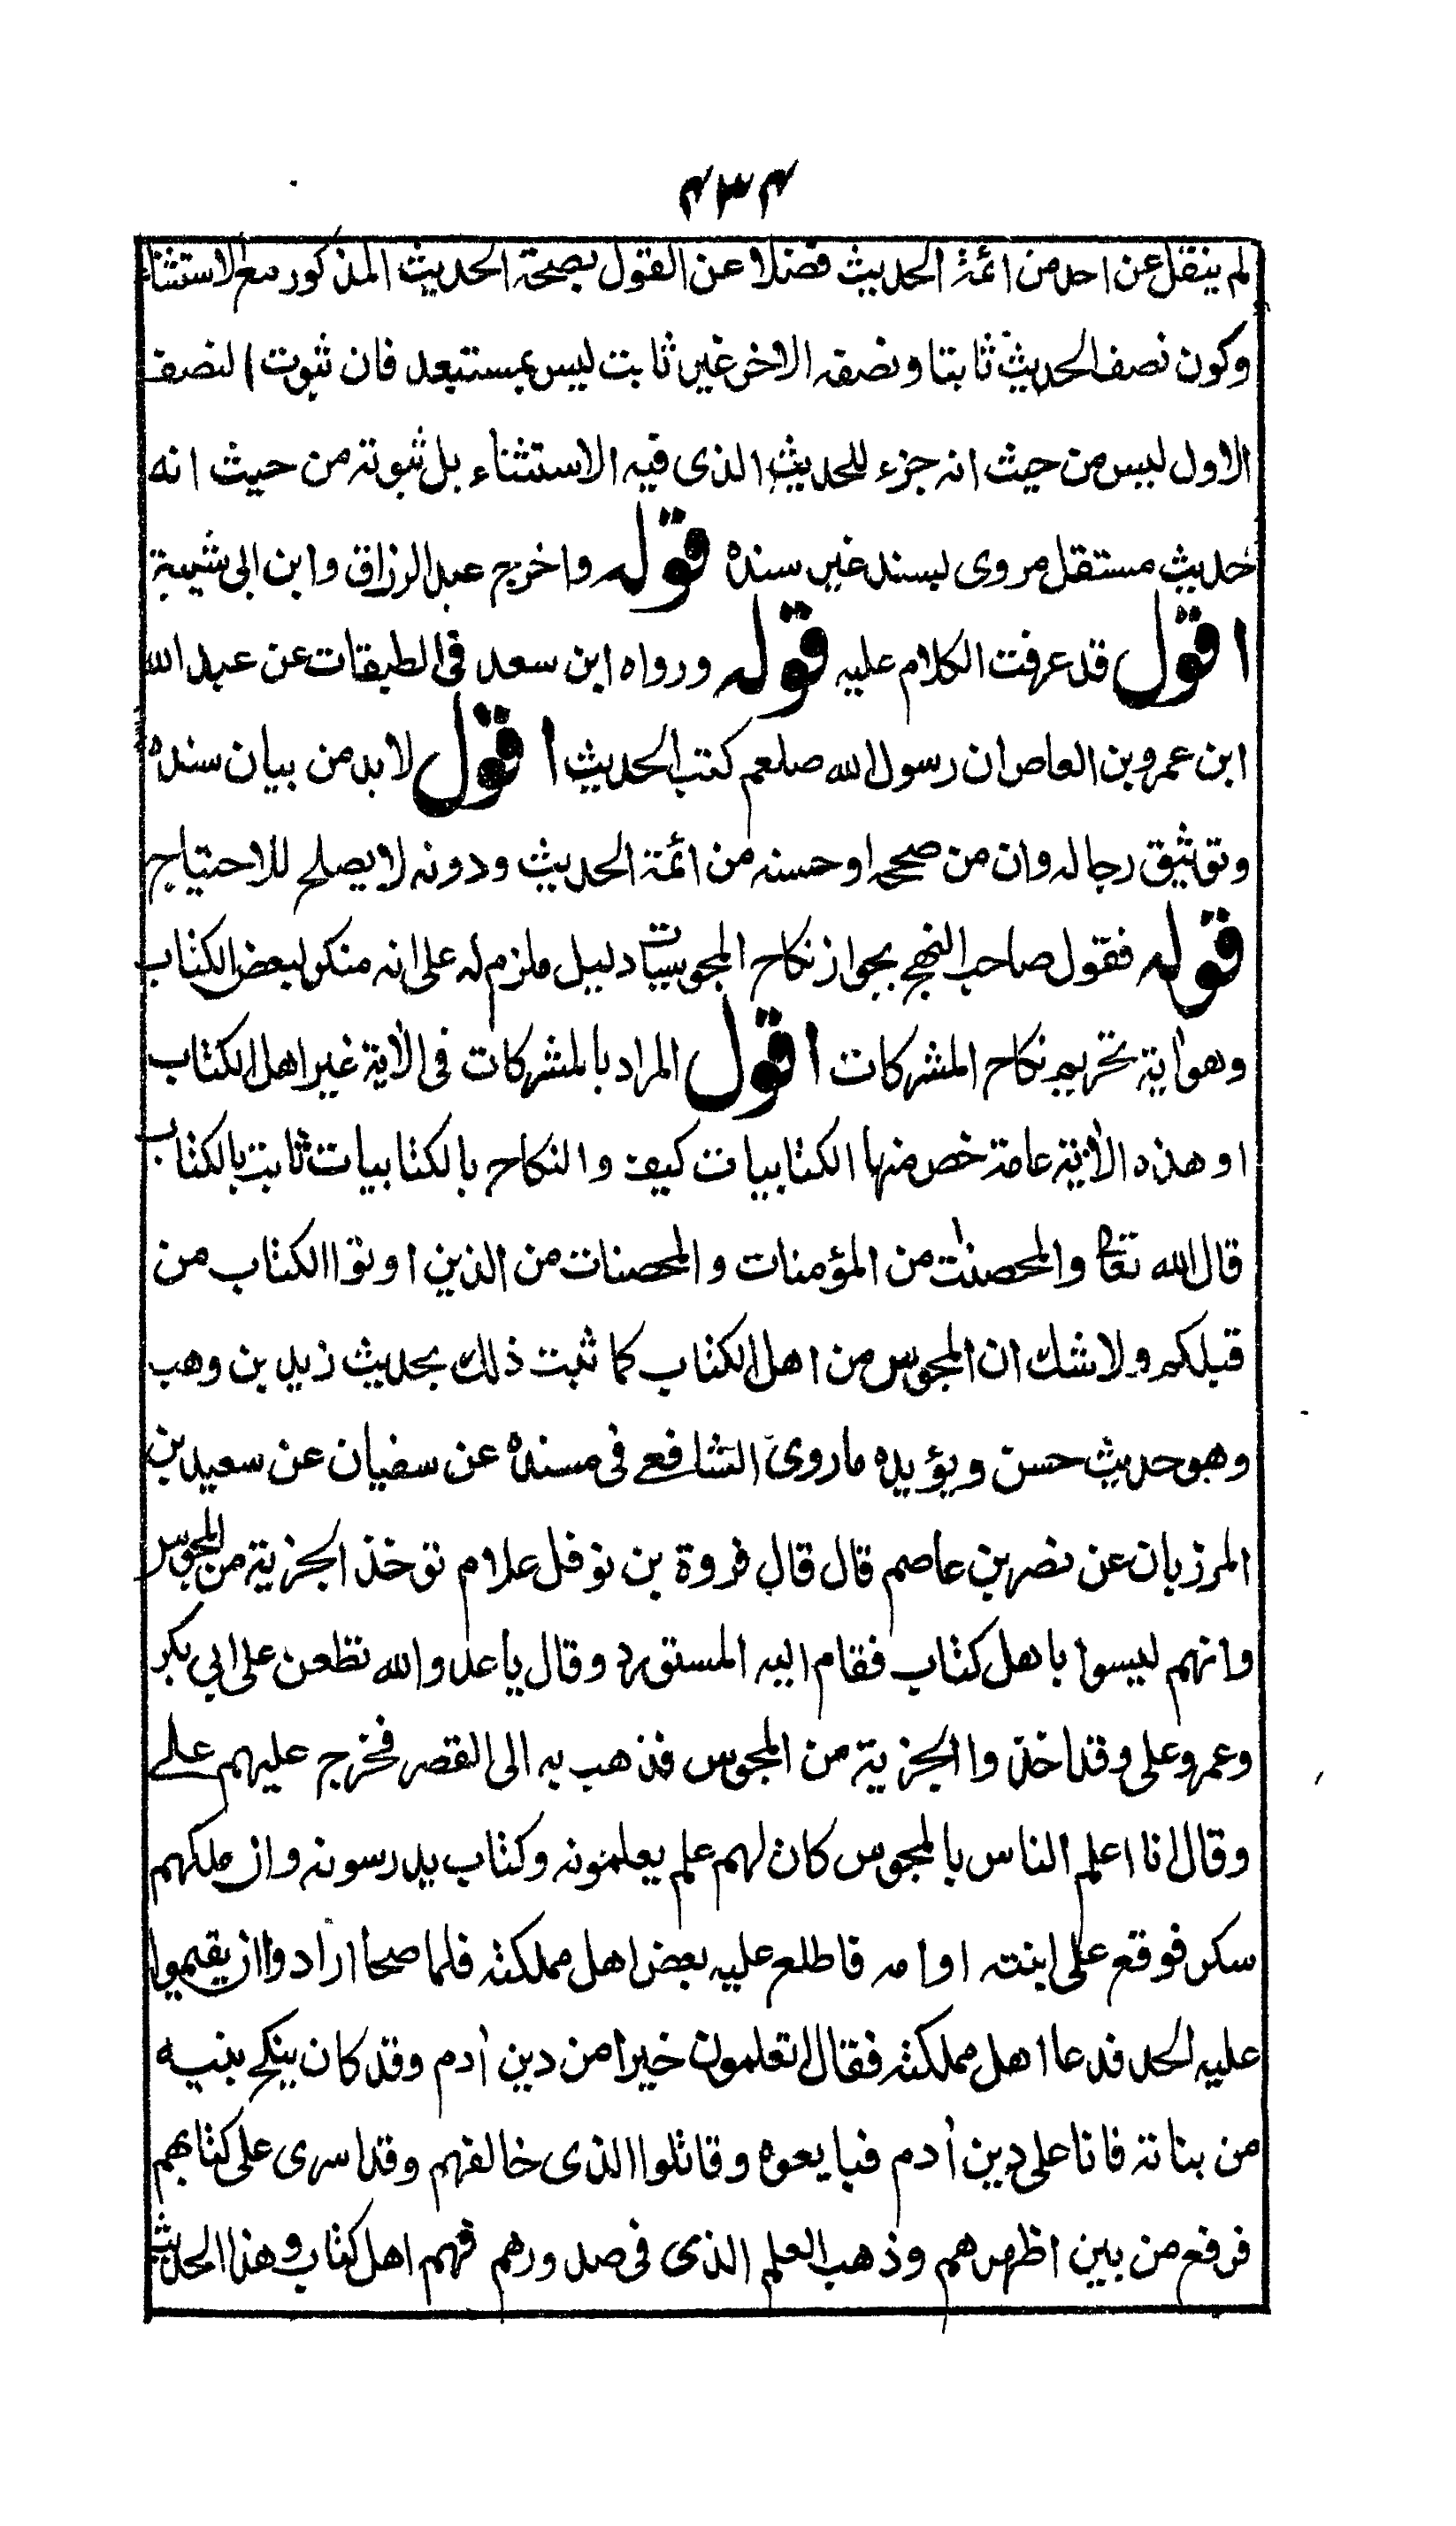 ۴۳۴
لم ينقل عن احد من ائمة الحديث فضلا عن القول بصحة الحديث المذكور مع الاستثناء
وكون نصف الحديث ثابتا ونصفه الاخر غير ثابت ليس بمستبعد فان ثبوت النصف
الاول ليس من حيث انه جزء للحديث الذى فيه الاستثناء بل ثبوته من حيث انه
حديث مستقل مروى بسند غير سنده قوله واخرج عبد الرزاق وابن ابى شيبة
اقول قد عرفت الكلام عليه قوله ورواه ابن سعد فى الطبقات عن عبد الله
ابن عمرو بن العاص ان رسول الله صلعم كتب الحديث اقول لا بد من بيان سنده
وتوثيق رجاله وان من صححه او حسنه من ائمة الحديث ودونه لا يصلح للاحتياج
قوله فقول صاحب النهج بجواز نكاح المجوسيات دليل ملزم له على انه منكر لبعض الكتاب
وهو اٰية تحريم نكاح المشركات اقول المراد بالمشركات فى الاٰية غير اهل الكتاب
او هذه الاٰية عامة خص منها الكتابيات كيف والنكاح بالكتابيات ثابت بالكتاب
قال الله تعا والمحصنٰت من المؤمنات والمحصنات من الذين اوتوا الكتاب من
قبلكم ولا شك ان المجوس من اهل الكتاب كما ثبت ذلك بحديث زيد بن وهب
وهو حديث حسن ويؤيده ما روى الشافعے فى مسنده عن سفيان عن سعيد بن
المرزبان عن نصر بن عاصم قال قال فروة بن نوفل علام توخذ الجزية من المجوس
وانهم ليسوا باهل كتاب فقام اليه المستورد وقال يا عدو الله تطعن على ابي بكر
وعمر وعلى وقد اخذوا الجزية من المجوس فذهب به الى القصر فخرج عليهم علے
وقال انا اعلم الناس بالمجوس كان لهم علم يعلمونه وكتاب يدرسونه وان ملكهم
سكر فوقع على ابنته او امه فاطلع عليه بعض اهل مملكته فلما صحا ارادوا ان يقيموا
عليه الحد فدعا اهل مملكته فقال اتعلمون خيرا من دين اٰدم وقد كان ينكح بنيه
من بناته فانا على دين اٰدم فبايعوه وقاتلوا الذى خالفهم وقد اسرى على كتابهم
فرفع من بين اظهرهم وذهب العلم الذى فى صدورهم فهم اهل كتاب وهذا الحديث